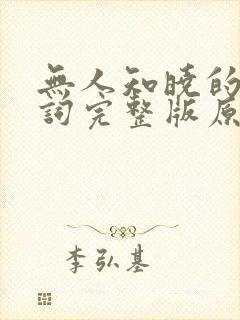 無人知曉的
詞完整版原
李弘基